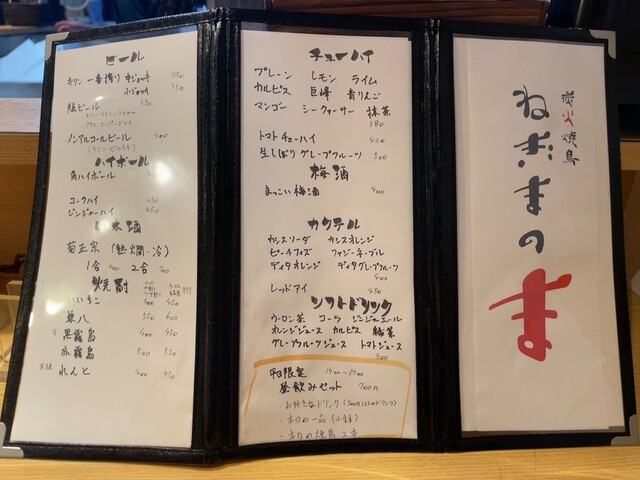 ビール
キリン 一番搾り 中ジョッキ 450
小ジョッキ 350
瓶ビール 550
ノンアルコールビール 400
(キリン ゼロイチ)
ハイボール
角ハイボール 400
コークハイ 450
ジンジャーハイ 450
日本酒
菊正宗 (熱燗・冷)
1合 400 2合 700
焼酎
いいちこ 400 450
兼八 550 600
黒霧島 400 450
赤霧島 500 550
れんと 400 450
チューハイ
プレーン レモン ライム
カルピス 巨峰 青りんご
マンゴー シークヮーサー 抹茶
380
トマトチューハイ 420
生しぼりグレープフルーツ 500
梅酒
まっこい梅酒 400
カクテル
カシスソーダ カシスオレンジ
ピーチフィズ ファジーネーブル
ディタオレンジ ディタグレープフルーツ
400
レッドアイ 450
ソフトドリンク
ウーロン茶 コーラ ジンジャーエール
オレンジジュース カルピス 緑茶
グレープフルーツジュース トマトジュース
300
平日限定 14:00~17:00
昼飲みセット 700円
・お好きなドリンク
・本日の一品(小鉢)
・本日の焼鳥 2本
炭火焼鳥
ねぎまの
ま